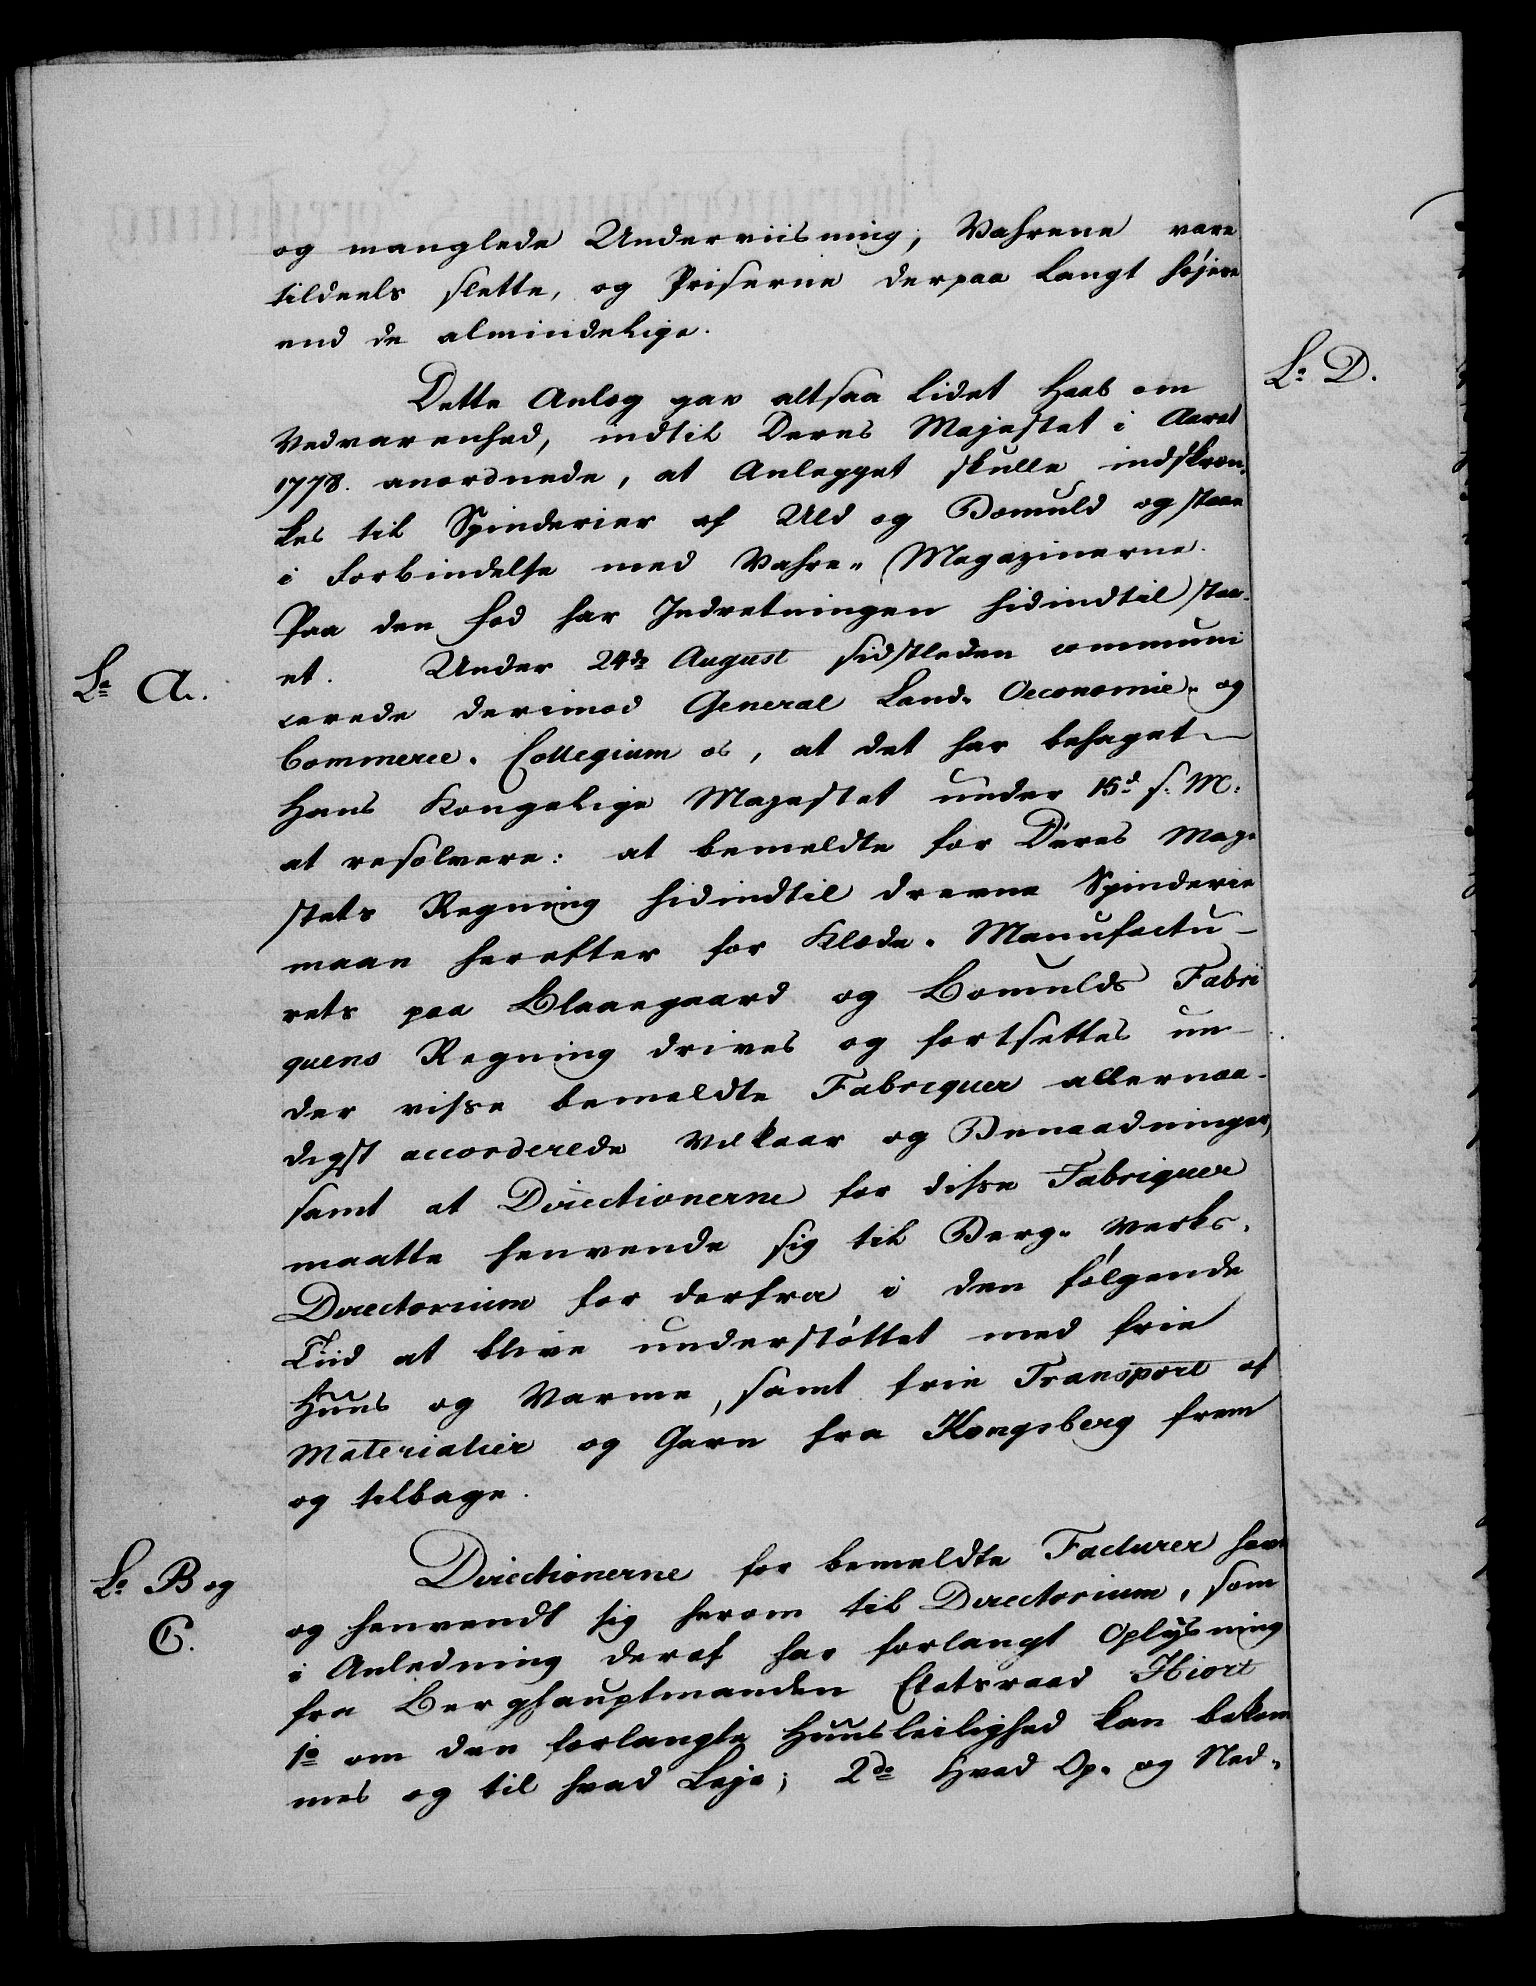 og manglede Underviisning, Vahrene vare
tildeels slette, og Priserne derpaa langt højere
end de almindelige.
Dette Anlæg gav altsaa lidet Haab om
Vedvarenhed, indtil Deres Majestet i Aaret
1778. anordnede, at Anlegget skulle indskræn-
kes til Spinderier af Uld og Bomuld og staae
i Forbindelse med Vahre-Magazinerne.
Paa den Fod har Indretningen hidindtil staa-
et. Under 24de August sidstleden communi
La A.
cerede derimod General Land-Oeconomie- og
Commerce-Collegium os, at det har behaget
Hans Kongelige Majestet under 15d s. M:
at resolvere: at bemeldte for Deres Maje
stets Regning hidindtil drevne Spinderie
maae herefter for Klæde-Manufactu-
rets paa Blaaegaard og Bomulds Fabri
quens Regning drives og fortsettes un-
der visse bemeldte Fabriquer allernaa-
digst accorderede Vilkaar og Benaadninger,
samt at Directionerne for disse Fabriquer
maatte henvende sig til Berg-Verks-
Directorium for derfra i den følgende
Tiid at blive understøttet med frie
Huus og Varme, samt frie Transport af
Materialier og Garn fra Kongsberg frem
og tilbage.
Directionerne for bemeldte Facturer have
La B og
C.
og henvendt sig herom til Directorium, som
i Anledning deraf har forlangt Oplysning
fra Berghauptmanden Etatsraad Hiort
1o om den forlangte Huusleilighed kan bekom
mes og til hvad Leje; 2do Hvad Op- og Ned-
La D.